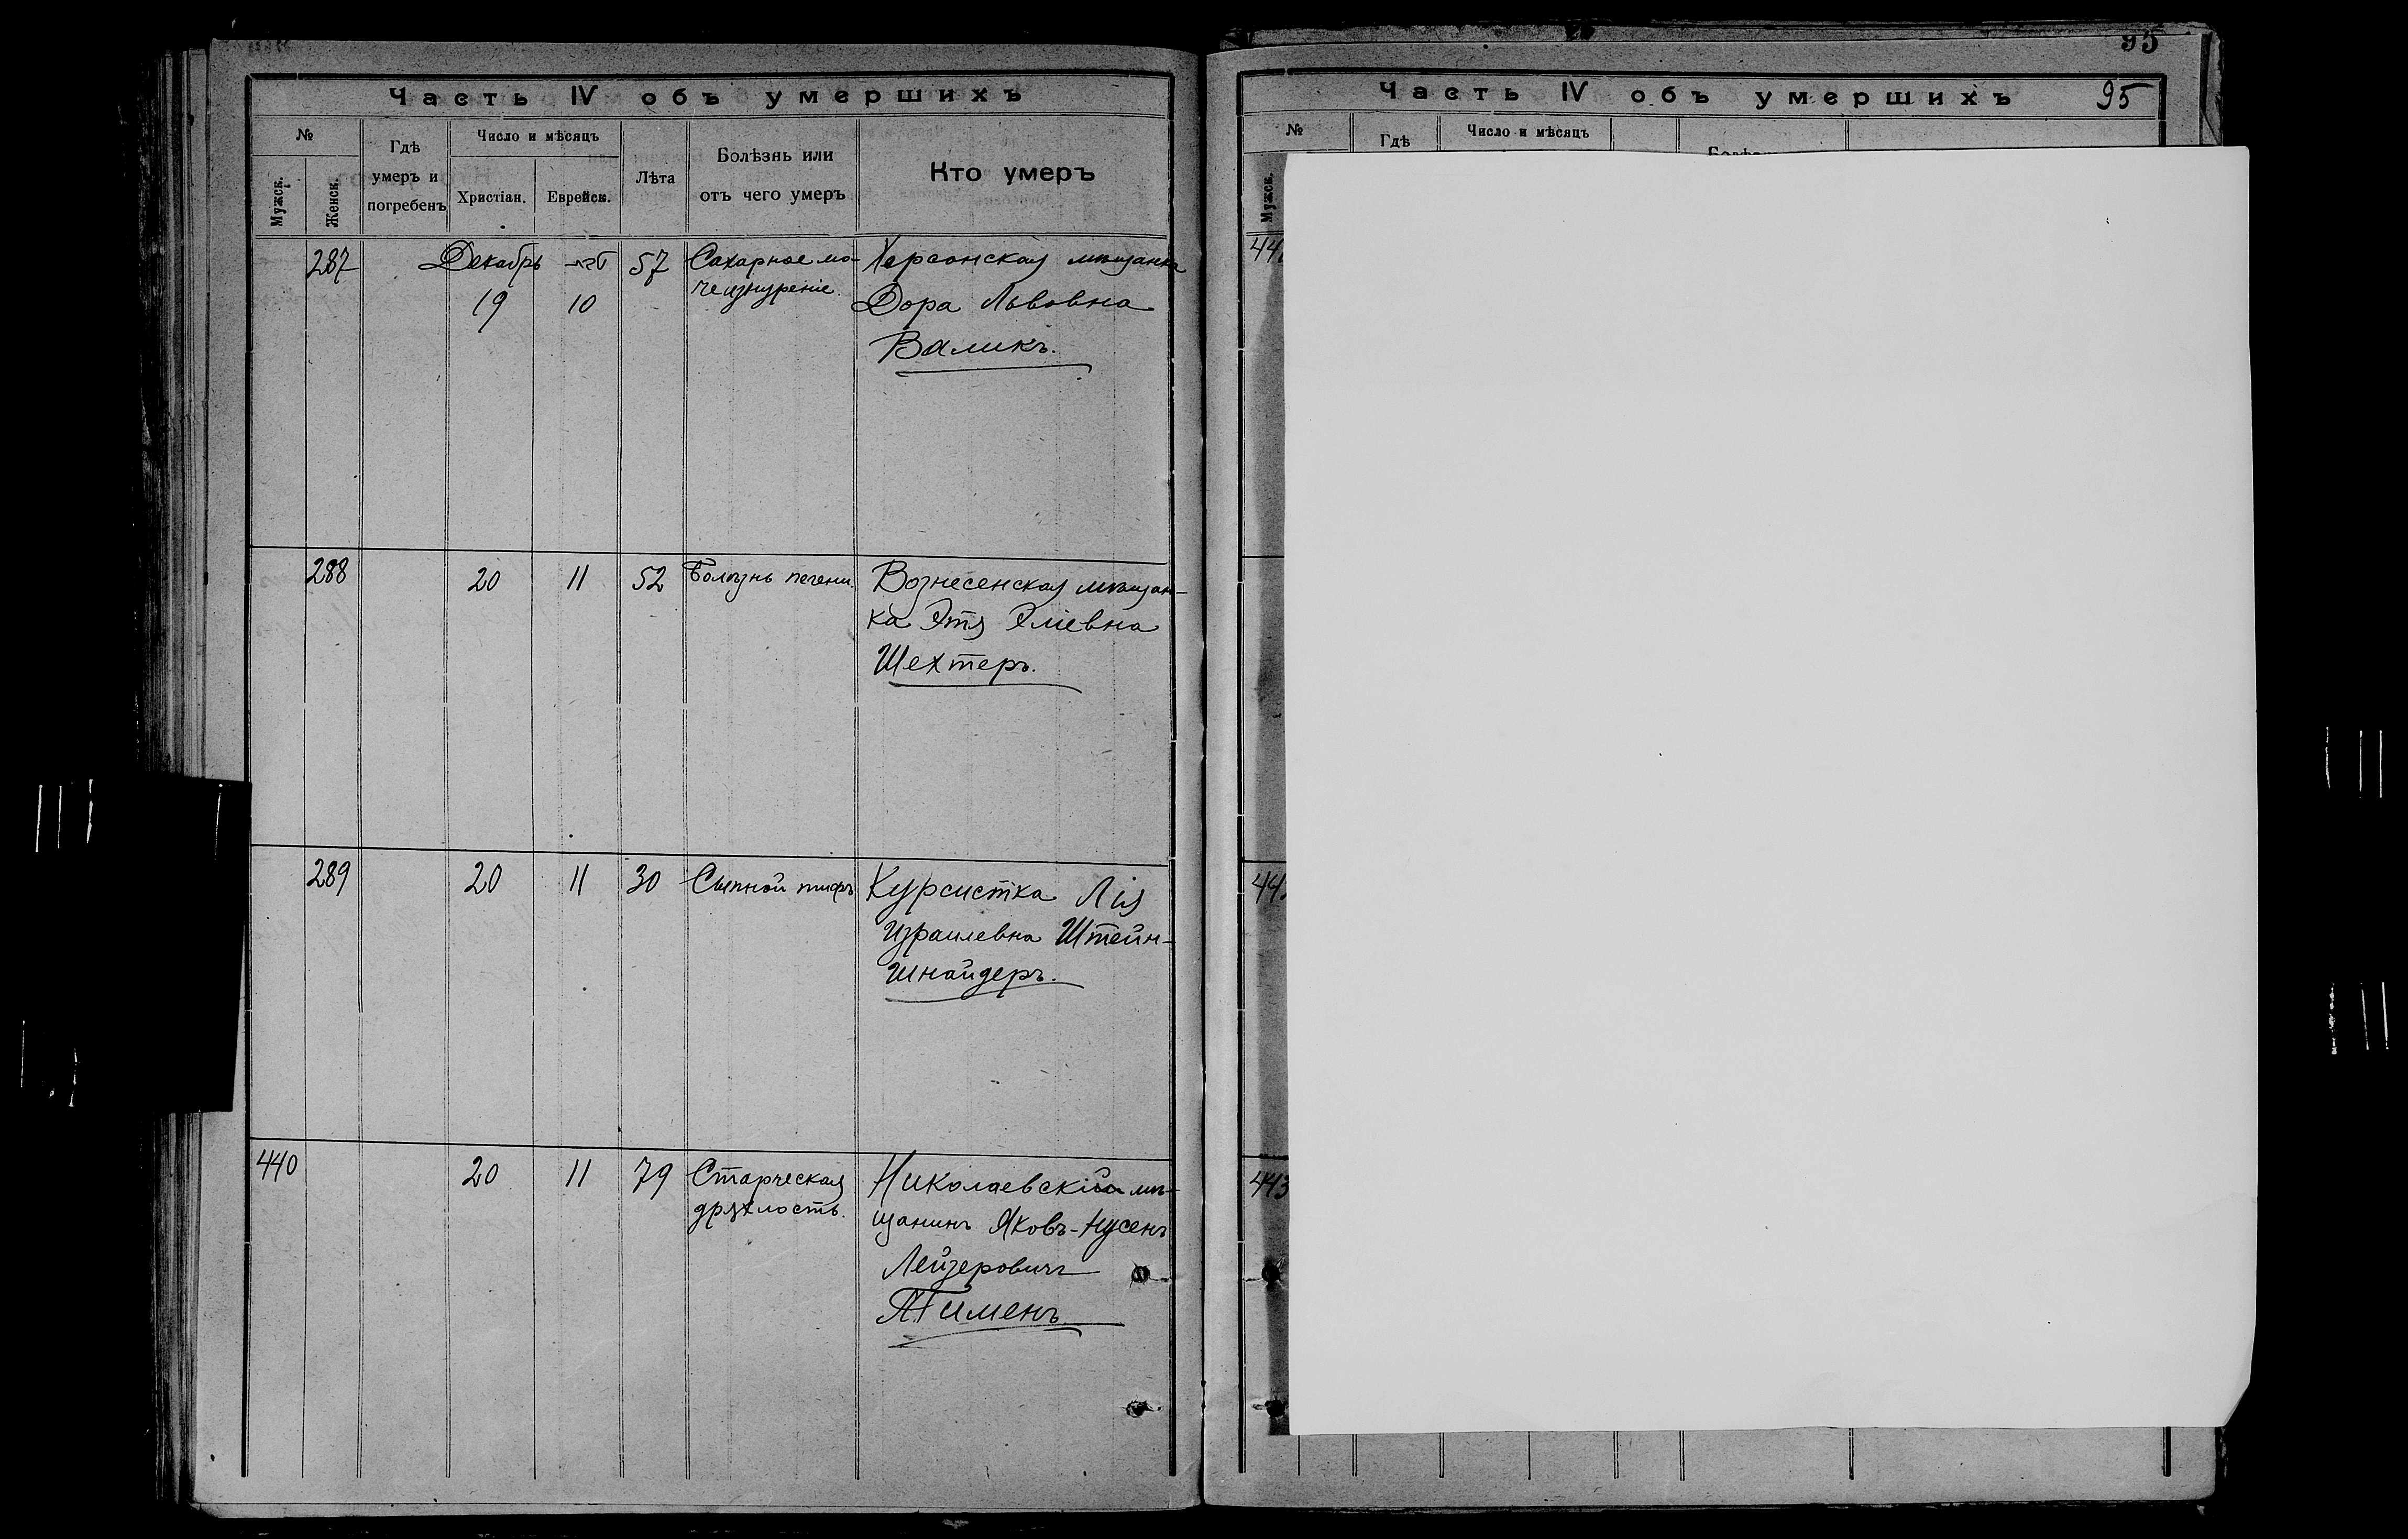 Часть IV объ умершихъ
№
Мужск.
Женск.
Гдѣ
умеръ и
погребенъ
Число и мѣсяцъ
Христіан.
Еврейск.
Лѣта
Болѣзнь или
отъ чего умеръ
Кто умеръ
287
Декабрь
19
10
57
Сахарное мо-
чеизнуреніе.
Херсонская мѣщанка
Дора Львовна
Валикъ.
288
20
11
52
Болѣзнь печени.
Вознесенская мѣщан-
ка Этя Эліевна
Шехтеръ.
289
20
11
30
Сыпной тифъ
Курсистка Лія
Израилевна Штейн-
шнайдеръ.
440
20
11
79
Старческая
дряхлость.
Николаевскій мѣ-
щанинъ Яковъ-Нусенъ
Лейзеровичъ
95
Часть IV объ умершихъ
95
№
Мужск.
Гдѣ
Число и мѣсяцъ
443